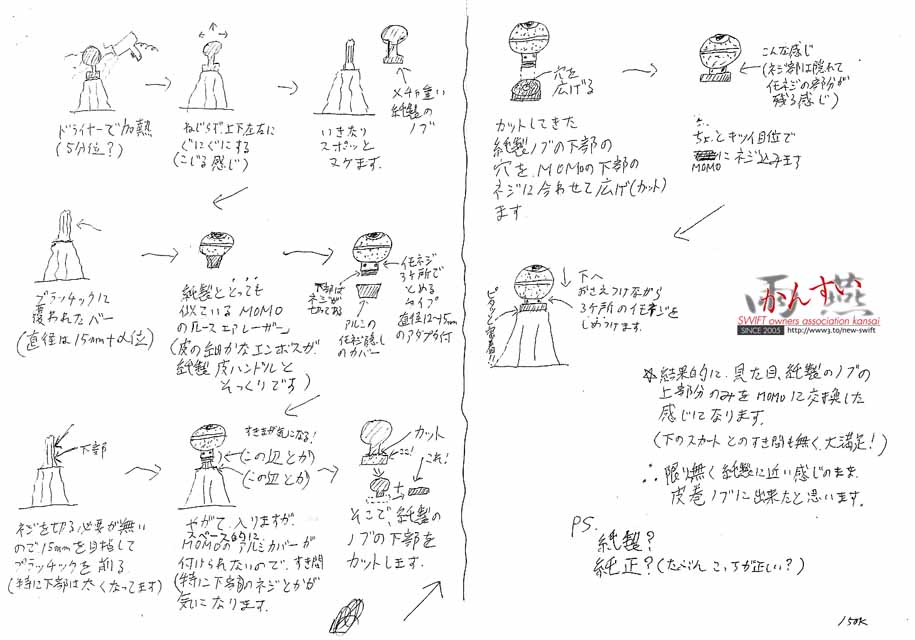 ドライヤーで加熱
(5分位?)
ねじらず、上下左右に
ぐにぐにする
(こじる感じ)
メチャ重い
純製の
ノブ
いきなり
スポッと
ヌケます。
プラッチックに
覆われたバー
(直径は15mm+α位)
純製ととっても
似ているMOMO
の
(皮の細かなエンボスが
純製皮ハンドルと
そっくりです)
下部は
ネジが
切ってある
アルミの
イモネジ隠し
のカバー
イモネジ
3ヶ所で
とめる
タイプ
直径12〜15mm
のアダプタ付
下部
ネジを切る必要が無い
ので15mmを目指して
プラッチックを削る
(特に下部は太くなってます)
すきまが気になる!
(この辺とか)
(この辺とか)
やがて、入りますが、
スペース的に
MOMOのアルミカバーが
付けられないので、すき間
(特に下部のネジとかが
気になります。
カット
ここ!
これ!
そこで、純製の
ノブの下部を
カットします。
穴を
広げる
カットしてきた
純製ノブの下部の
穴を、MOMOの下部の
ネジに合わせて広げ(カット)
ます
こんな感じ
(ネジ部は隠れて
イモネジの部分が
残る感じ)
ちょっとキツイ目位で
MOMOにネジ込みます
ピタッと密着!!
下へ
おさえつけながら
3ヶ所のイモネジを
しめつけます。
雨燕
かんすい
SWIFT owners association kansai
SINCE 2005 http://www3.to/new-swift
☆結果的に、見た目、純製のノブの
上部分のみをMOMOに交換した
感じになります。
(下のスカートとのすき間も無く、大満足!)
∴限り無く純製に近い感じのまま、
皮巻ノブに出来たと思います。
PS.
純製?
純正?(たぶんこっちが正しい?)
150K